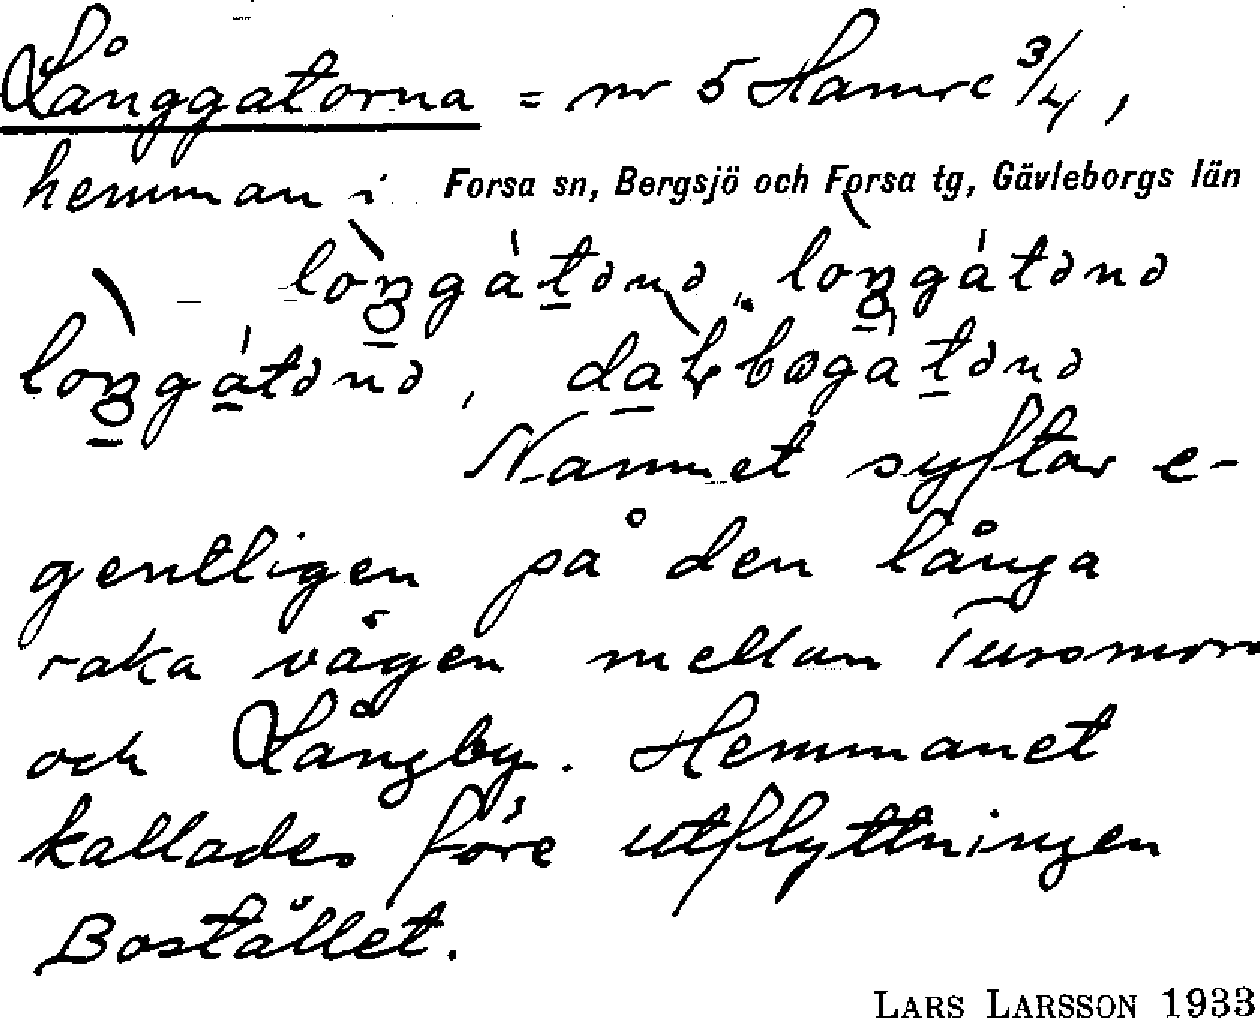 Långgatorna = nr 5 Hamre 3/4,
hemman i Forsa sn, Bergsjö och Forsa tg, Gävleborgs län
Namnet syftar e-
gentligen på den långa
raka vägen mellan
och Långby. Hemmanet
kallades före utflyttningen
Bostället.
LARS LARSSON 1933